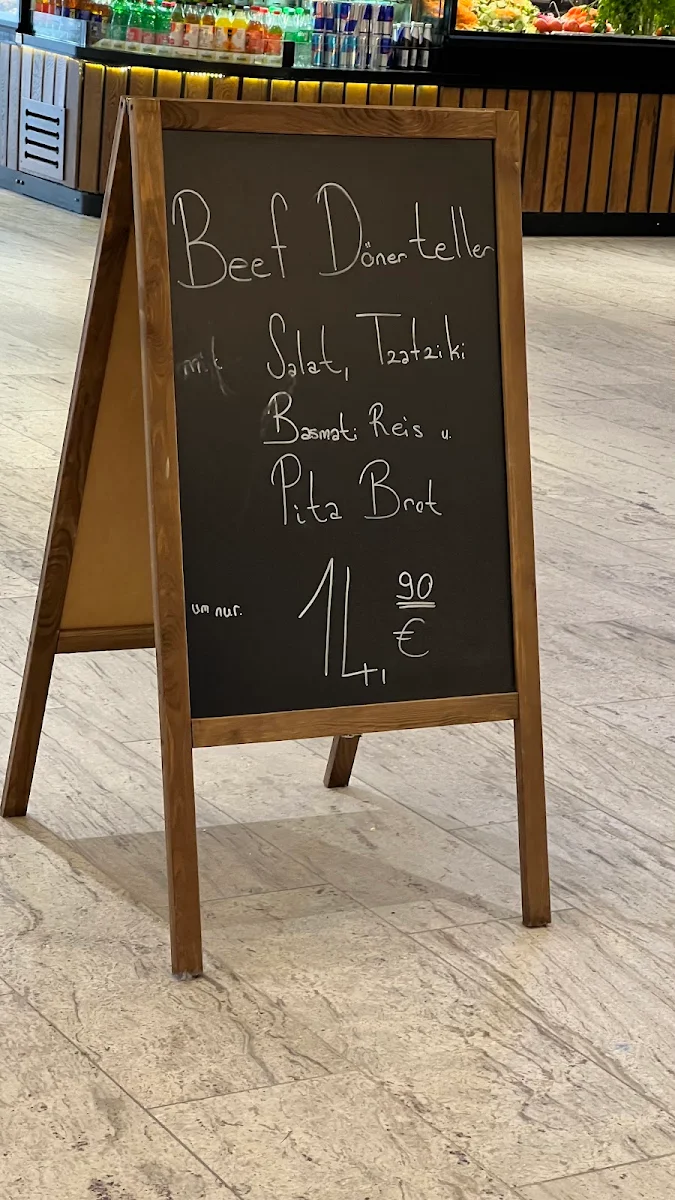 Beef Döner teller
mit Salat, Tzatziki
Basmati Reis u.
Pita Brot
um nur. 14,90 €